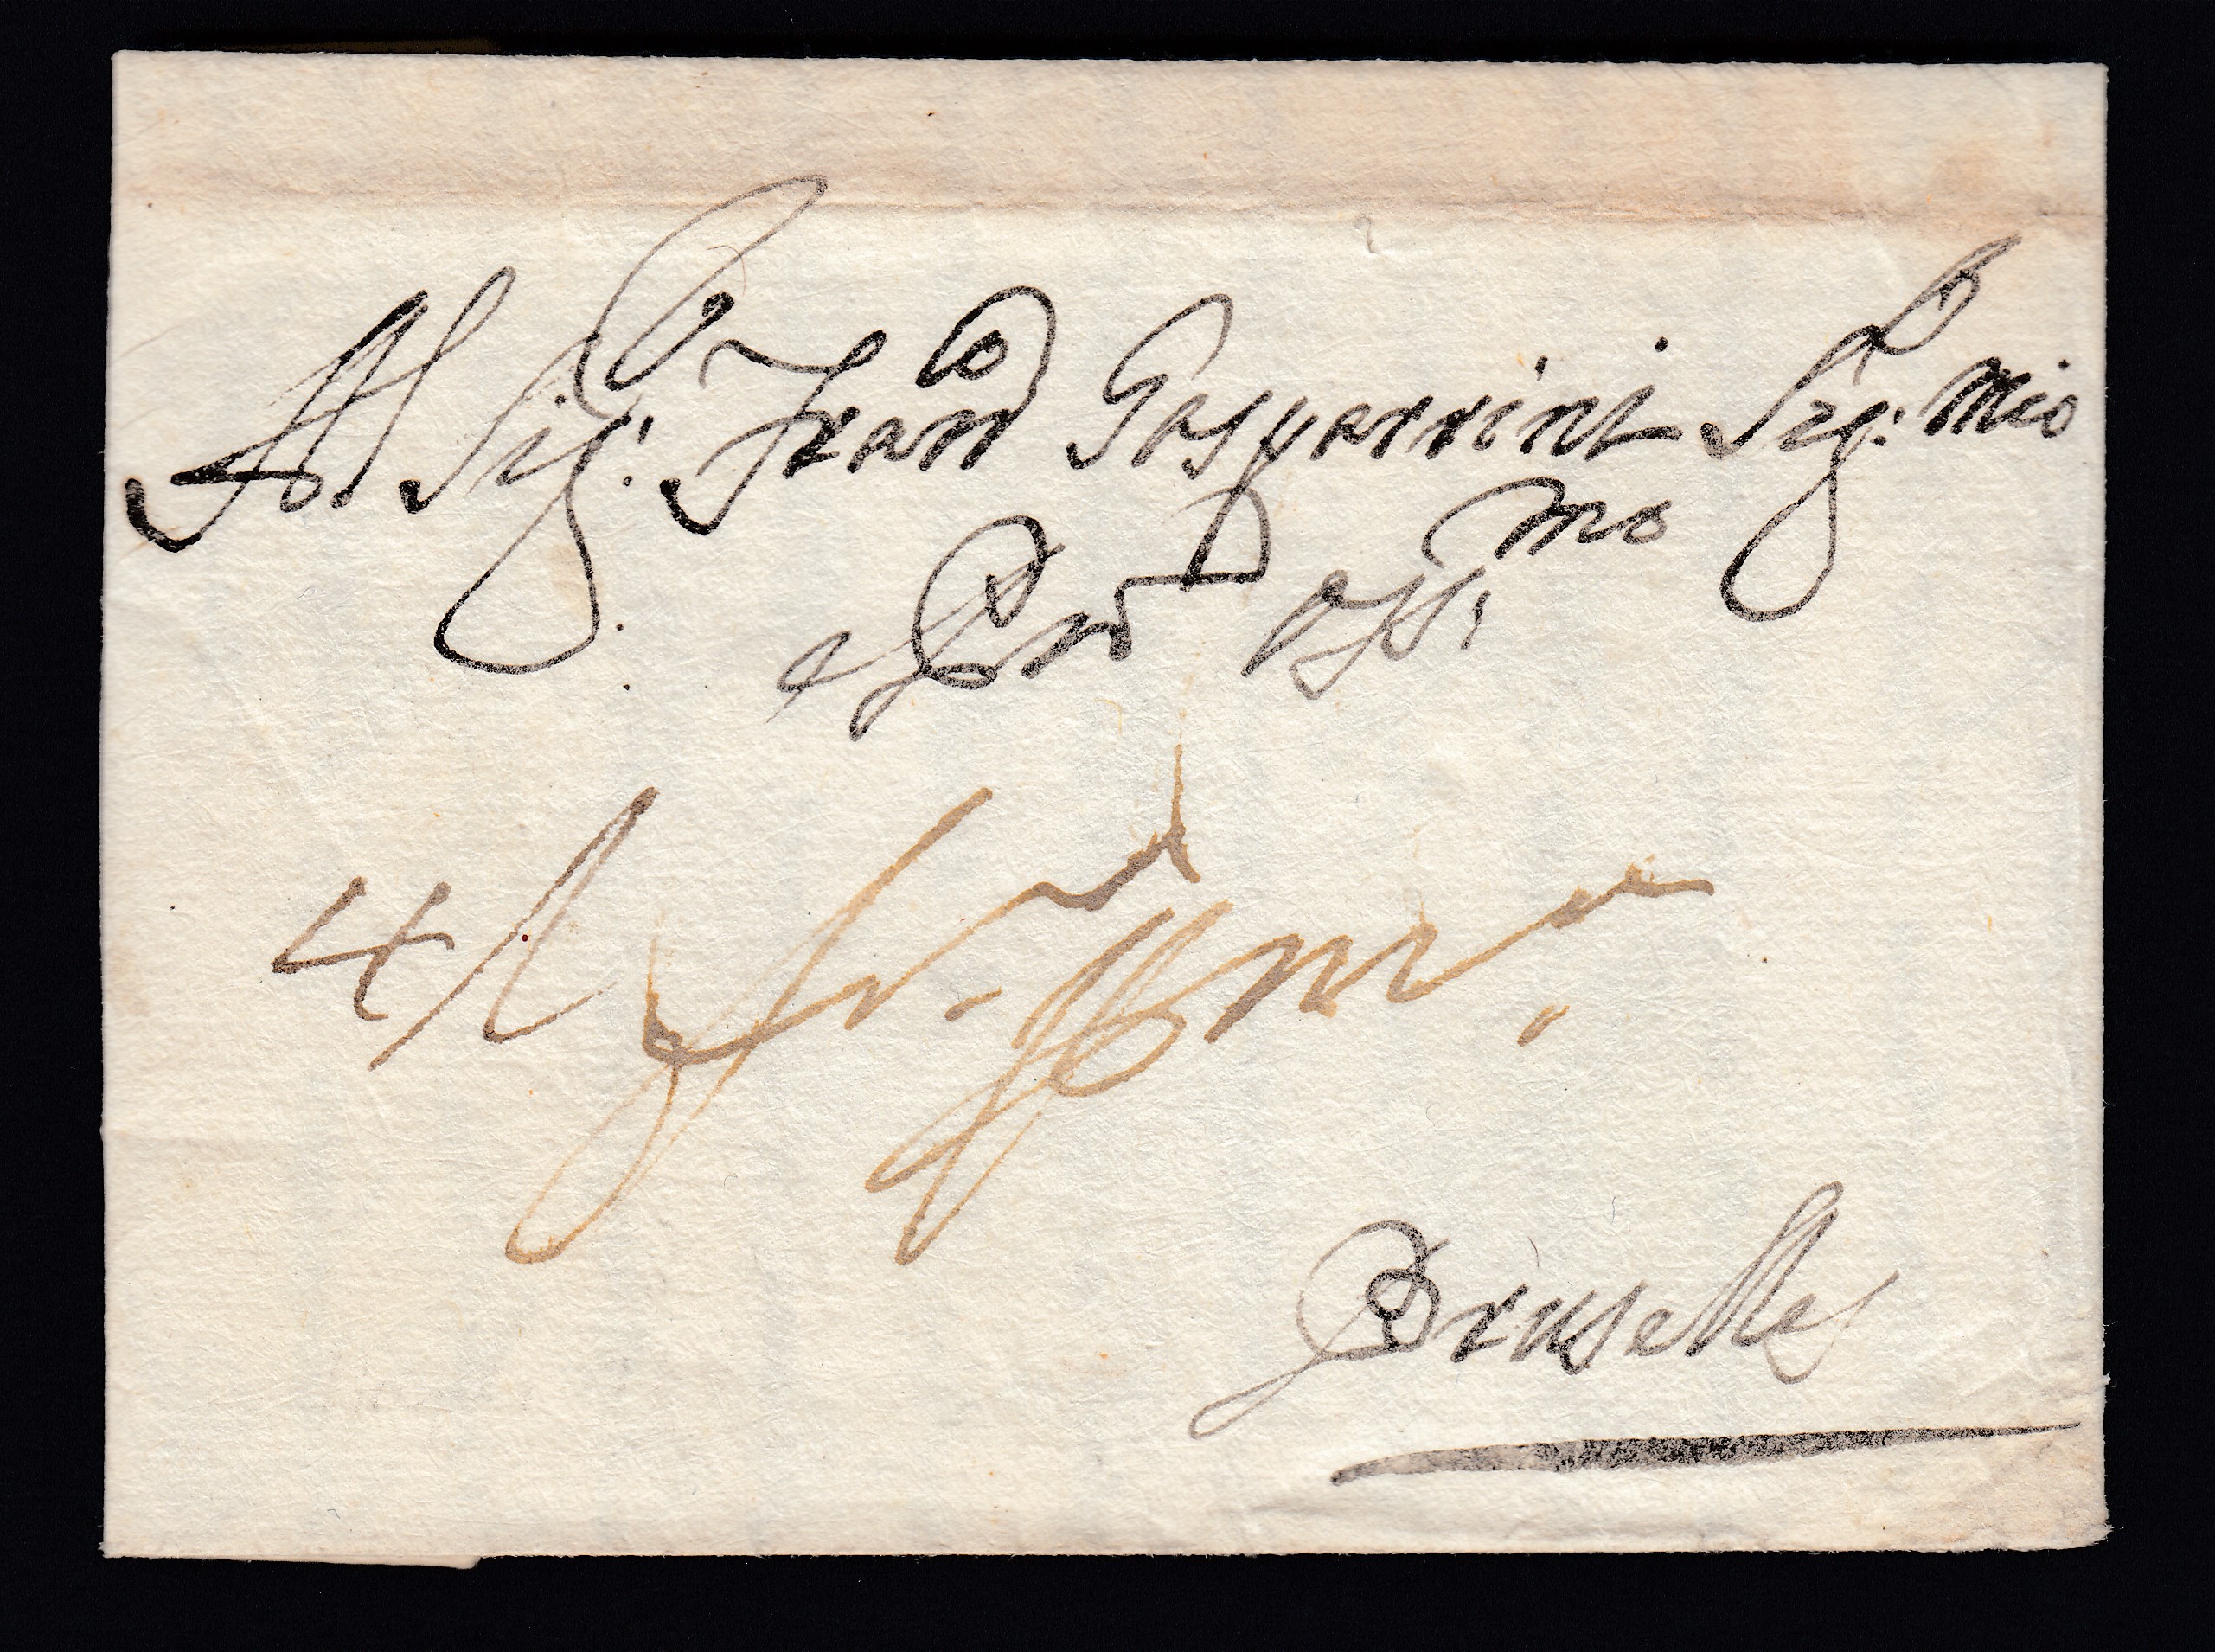 Al Sig.r Fran.co Gasparrini Sig.r mio
e Pron Oss.mo
4
Bruselles